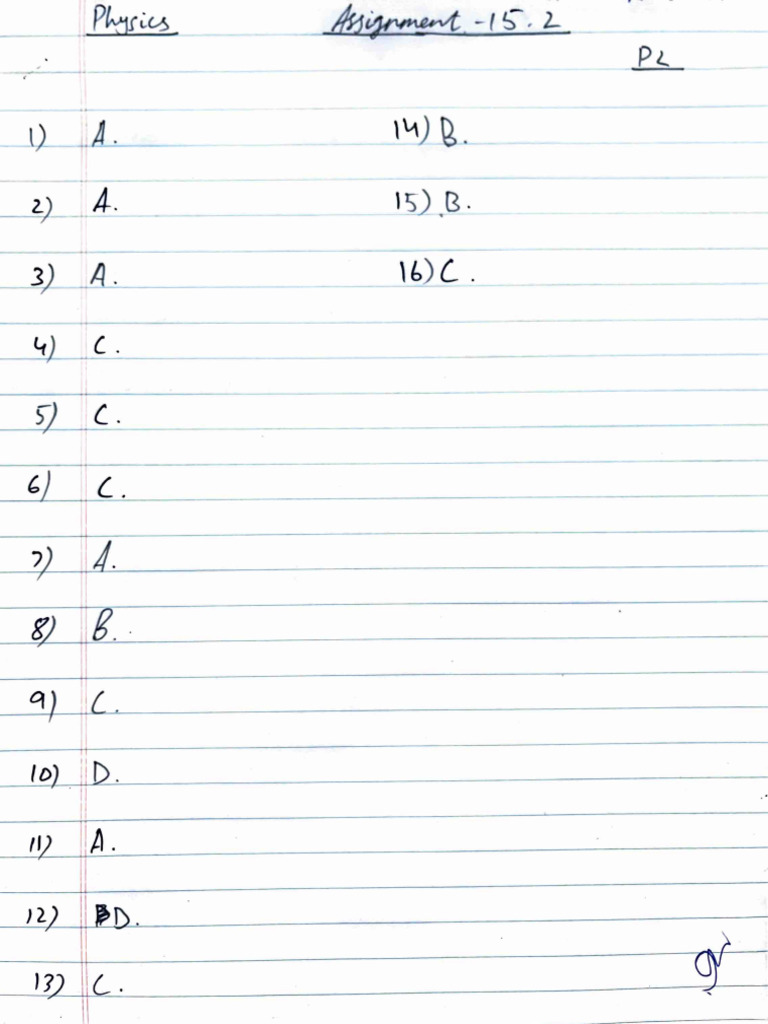 Physics Assignment - 15.2
P2
1) A. 14) B.
2) A. 15) B.
3) A. 16) C.
4) C.
5) C.
6) C.
7) A.
8) B.
9) C.
10) D.
11) A.
12) D.
13) C.